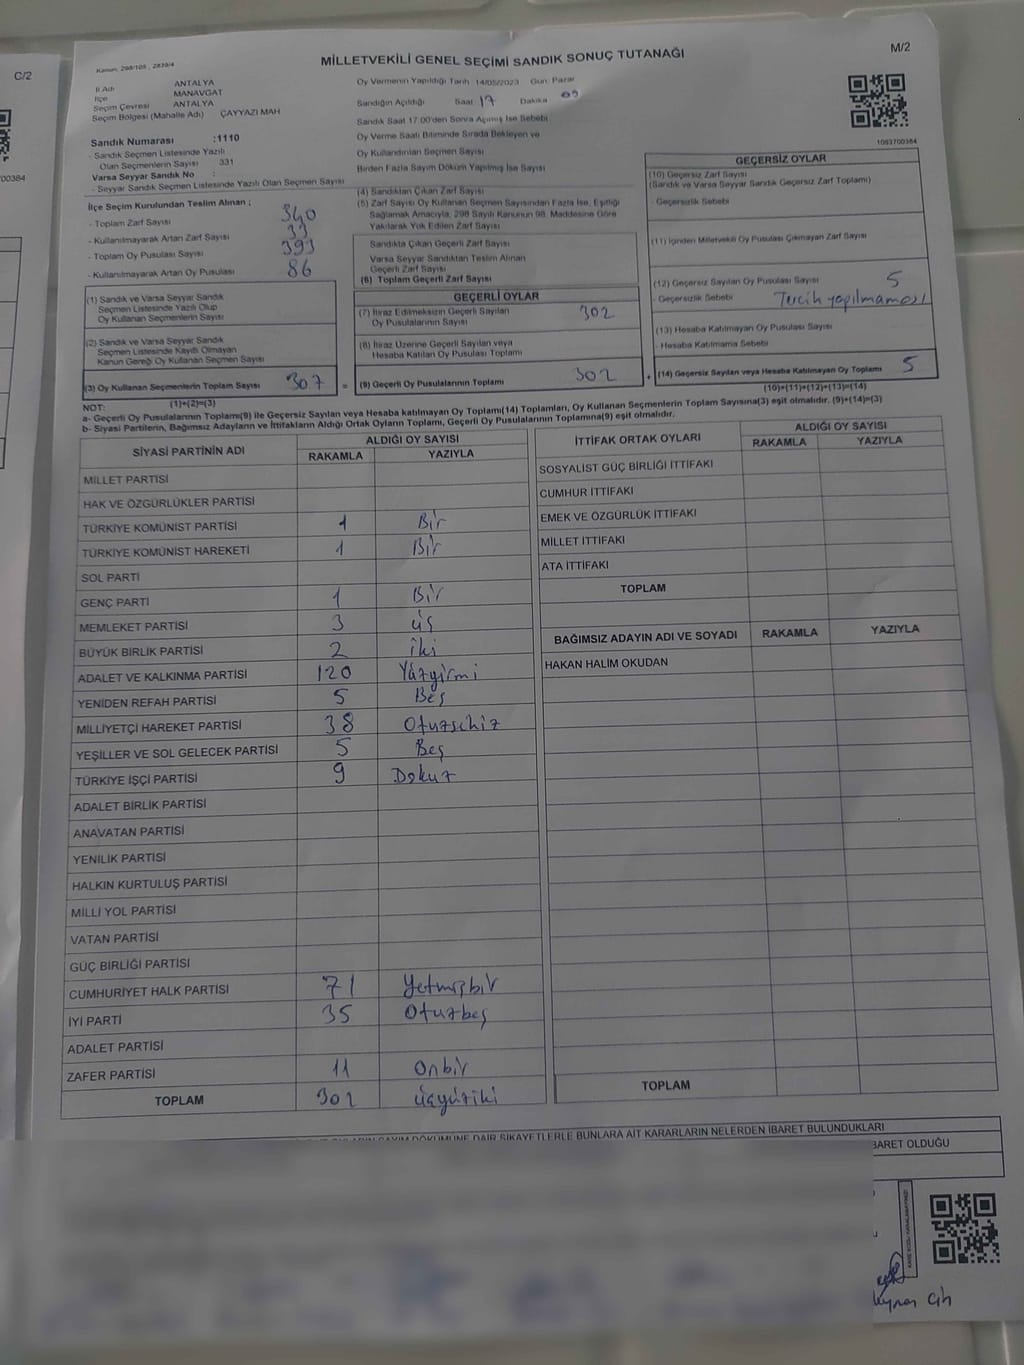 C/2
00384
Kanun: 298/105 , 2839/4
MİLLETVEKİLİ GENEL SEÇİMİ SANDIK SONUÇ TUTANAĞI
M/2
İl Adı ANTALYA
İlçe MANAVGAT
Seçim Çevresi ANTALYA
Seçim Bölgesi (Mahalle Adı) ÇAYYAZI MAH
Sandık Numarası :1110
- Sandık Seçmen Listesinde Yazılı
Olan Seçmenlerin Sayısı 331
Varsa Seyyar Sandık No :
- Seyyar Sandık Seçmen Listesinde Yazılı Olan Seçmen Sayısı
İlçe Seçim Kurulundan Teslim Alınan ;
- Toplam Zarf Sayısı 340
- Kullanılmayarak Artan Zarf Sayısı 33
- Toplam Oy Pusulası Sayısı 393
- Kullanılmayarak Artan Oy Pusulası 86
(1) Sandık ve Varsa Seyyar Sandık
Seçmen Listesinde Yazılı Olup
Oy Kullanan Seçmenlerin Sayısı
(2) Sandık ve Varsa Seyyar Sandık
Seçmen Listesinde Kayıtlı Olmayan
Kanun Gereği Oy Kullanan Seçmen Sayısı
(3) Oy Kullanan Seçmenlerin Toplam Sayısı 307 =
(1)+(2)=(3)
Oy Vermenin Yapıldığı Tarih 14/05/2023 Gün: Pazar
Sandığın Açıldığı Saat 17 Dakika 09
Sandık Saat 17:00'den Sonra Açılmış İse Sebebi
Oy Verme Saati Bitiminde Sırada Bekleyen ve
Oy Kullandırılan Seçmen Sayısı
Birden Fazla Sayım Döküm Yapılmış İse Sayısı
(4) Sandıktan Çıkan Zarf Sayısı
(5) Zarf Sayısı Oy Kullanan Seçmen Sayısından Fazla İse, Eşitliği
Sağlamak Amacıyla, 298 Sayılı Kanunun 98. Maddesine Göre
Yakılarak Yok Edilen Zarf Sayısı
Sandıkta Çıkan Geçerli Zarf Sayısı
Varsa Seyyar Sandıktan Teslim Alınan
Geçerli Zarf Sayısı
(6) Toplam Geçerli Zarf Sayısı
GEÇERLİ OYLAR
(7) İtiraz Edilmeksizin Geçerli Sayılan
Oy Pusulalarının Sayısı 302
(8) İtiraz Üzerine Geçerli Sayılan veya
Hesaba Katılan Oy Pusulası Toplamı
(9) Geçerli Oy Pusulalarının Toplamı 302 +
1093700384
GEÇERSİZ OYLAR
(10) Geçersiz Zarf Sayısı
(Sandık ve Varsa Seyyar Sandık Geçersiz Zarf Toplamı)
- Geçersizlik Sebebi
(11) İçinden Milletvekili Oy Pusulası Çıkmayan Zarf Sayısı
(12) Geçersiz Sayılan Oy Pusulası Sayısı 5
- Geçersizlik Sebebi Tercih yapılmaması
(13) Hesaba Katılmayan Oy Pusulası Sayısı
- Hesaba Katılmama Sebebi
(14) Geçersiz Sayılan veya Hesaba Katılmayan Oy Toplamı 5
(10)+(11)+(12)+(13)=(14)
NOT:
a- Geçerli Oy Pusulalarının Toplamı(9) ile Geçersiz Sayılan veya Hesaba katılmayan Oy Toplamı(14) Toplamları, Oy Kullanan Seçmenlerin Toplam Sayısına(3) eşit olmalıdır. (9)+(14)=(3)
b- Siyasi Partilerin, Bağımsız Adayların ve İttifakların Aldığı Ortak Oyların Toplamı, Geçerli Oy Pusulalarının Toplamına(9) eşit olmalıdır.
SİYASİ PARTİNİN ADI ALDIĞI OY SAYISI
RAKAMLA YAZIYLA
MİLLET PARTİSİ
HAK VE ÖZGÜRLÜKLER PARTİSİ
TÜRKİYE KOMÜNİST PARTİSİ 1 Bir
TÜRKİYE KOMÜNİST HAREKETİ 1 Bir
SOL PARTİ
GENÇ PARTİ 1 Bir
MEMLEKET PARTİSİ 3 üş
BÜYÜK BİRLİK PARTİSİ 2 iki
ADALET VE KALKINMA PARTİSİ 120 Yüzyirmi
YENİDEN REFAH PARTİSİ 5 Beş
MİLLİYETÇİ HAREKET PARTİSİ 38 Otuzsekiz
YEŞİLLER VE SOL GELECEK PARTİSİ 5 Beş
TÜRKİYE İŞÇİ PARTİSİ 9 Dokuz
ADALET BİRLİK PARTİSİ
ANAVATAN PARTİSİ
YENİLİK PARTİSİ
HALKIN KURTULUŞ PARTİSİ
MİLLİ YOL PARTİSİ
VATAN PARTİSİ
GÜÇ BİRLİĞİ PARTİSİ
CUMHURİYET HALK PARTİSİ 71 Yetmişbir
İYİ PARTİ 35 Otuzbeş
ADALET PARTİSİ
ZAFER PARTİSİ 11 Onbir
TOPLAM 302 üçyüziki
İTTİFAK ORTAK OYLARI ALDIĞI OY SAYISI
RAKAMLA YAZIYLA
SOSYALİST GÜÇ BİRLİĞİ İTTİFAKI
CUMHUR İTTİFAKI
EMEK VE ÖZGÜRLÜK İTTİFAKI
MİLLET İTTİFAKI
ATA İTTİFAKI
TOPLAM
BAĞIMSIZ ADAYIN ADI VE SOYADI RAKAMLA YAZIYLA
HAKAN HALİM OKUDAN
TOPLAM
SAYIM DÖKÜMÜNE DAİR ŞİKAYETLERLE BUNLARA AİT KARARLARIN NELERDEN İBARET BULUNDUKLARI
BARET OLDUĞU